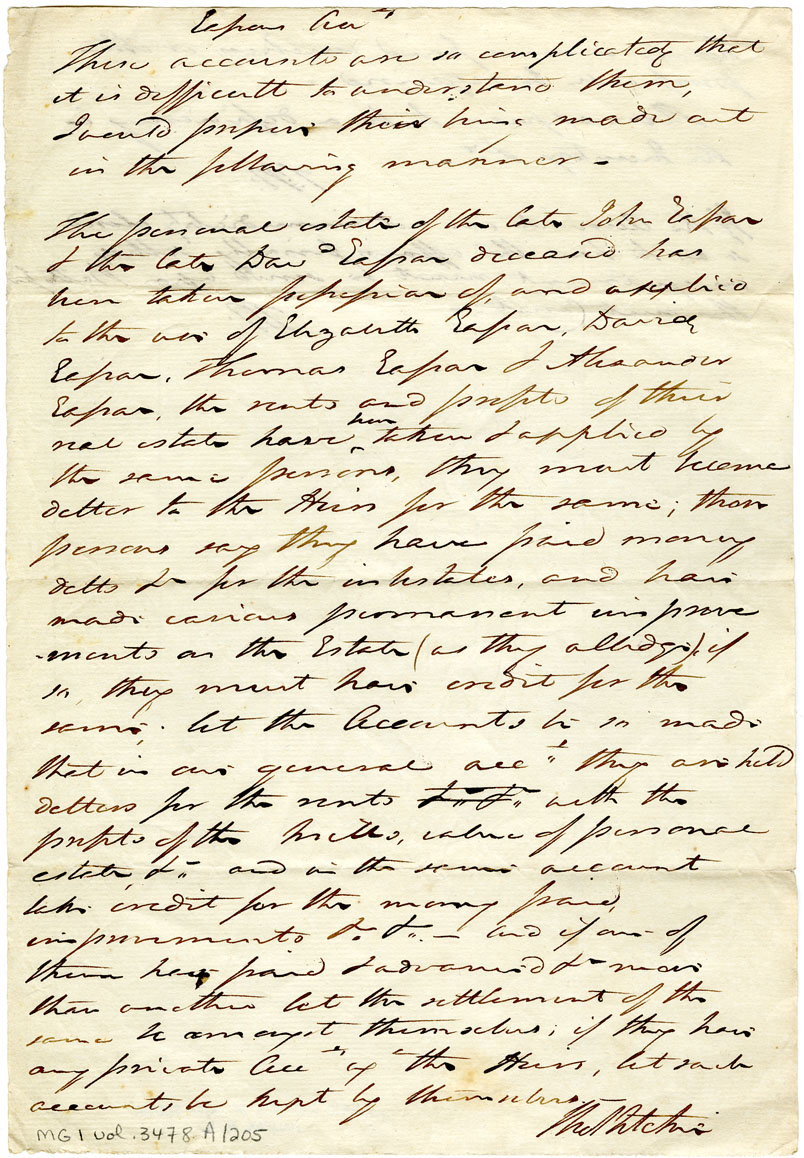 Easson Acct
These accounts are so complicated, that
it is difficult to understand them,
I would propose their being made out
in the following manner -
The personal estate of the late John Easson
& the late Davd Easson deceased has
been taken possession of, and applied
to the use of Elizabeth Easson, David
Easson, Thomas Easson & Alexander
Easson, the rents and profits of their
real estate have been taken & applied by
the same persons, they must become
debtor to the Heirs for the same; those
persons say they have paid money
debts &c for the intestates, and have
made various permanent improve
-ments on the Estate (as they alledge), if
so, they must have credit for the
same; let the Accounts be so made
that in one general acct they are held
debtors for the rents &c &c with the
profits of the mills, value of personal
estate, &c and in the same account
take credit for the money paid,
improvements &c &c. - and if one of
them have paid & advanced &c more
than another let the settlement of the
same be amongst themselves; if they have
any private Acct agt the Heirs, let such
accounts be kept by themselves. -
Tho Ritchie
MG1 vol. 3478 A/205